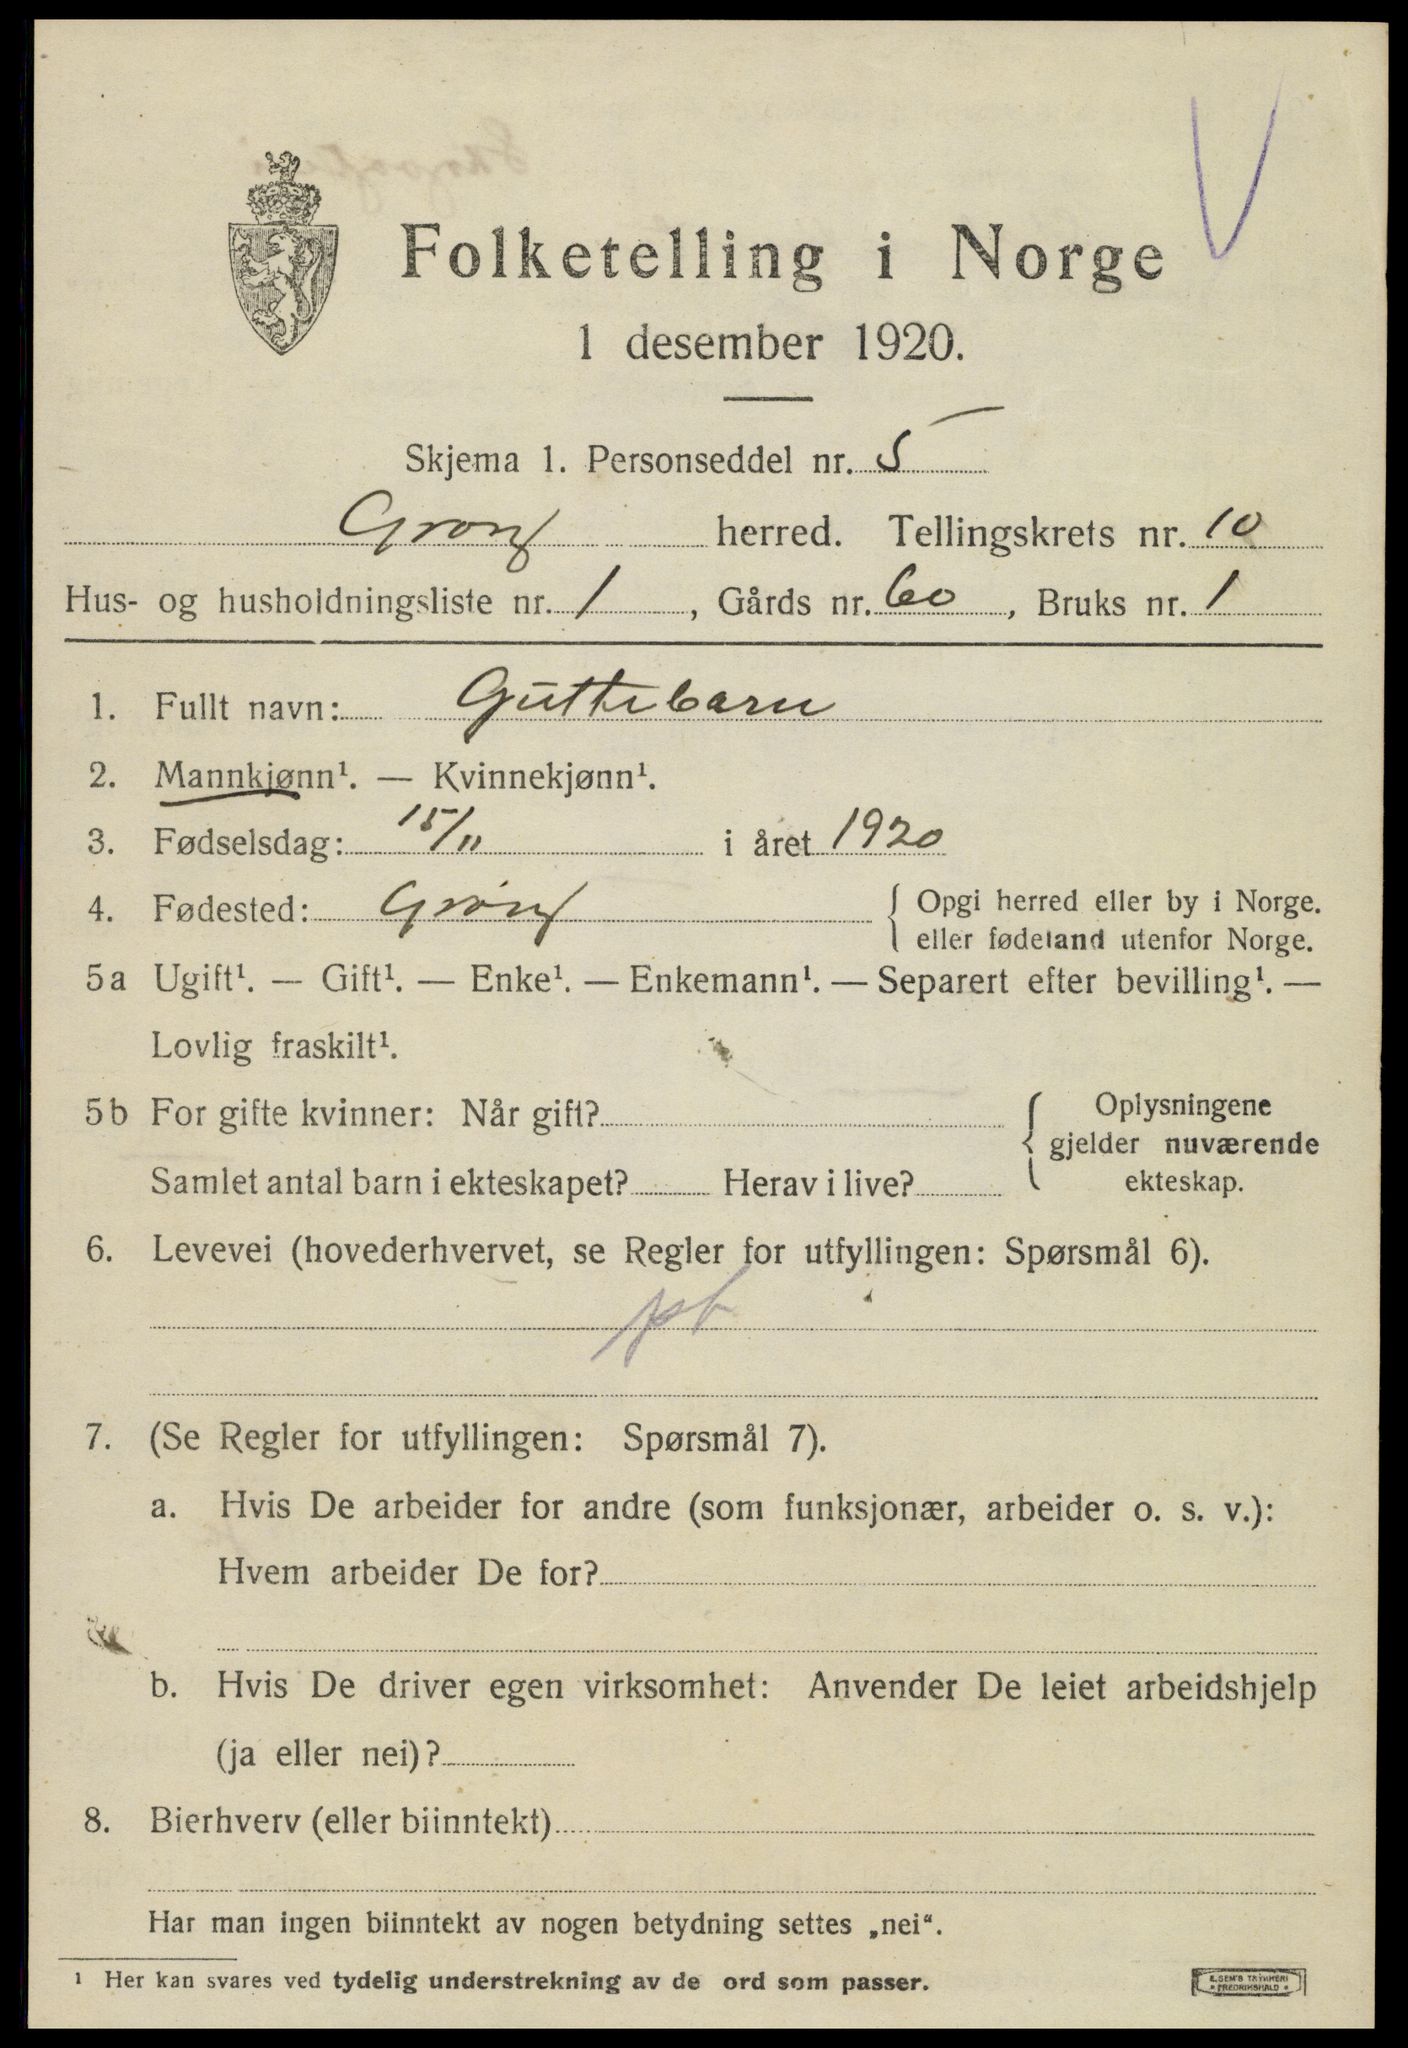 Folketelling i Norge
1 desember 1920.
Skjema 1. Personseddel nr. 5
Grong herred. Tellingskrets nr. 10
Hus- og husholdningsliste nr. 1, Gårds nr. 60, Bruks nr. 1
1. Fullt navn: Guttebarn
2. Mannkjønn¹. — Kvinnekjønn¹.
3. Fødselsdag: 15/11 i året 1920
4. Fødested: Grong { Opgi herred eller by i Norge.
eller fødeland utenfor Norge.
5a Ugift¹. — Gift¹. — Enke¹. — Enkemann¹. — Separert efter bevilling¹. —
Lovlig fraskilt¹.
5b For gifte kvinner: Når gift? { Oplysningene
gjelder nuværende
Samlet antal barn i ekteskapet? Herav i live? ekteskap.
6. Levevei (hovederhvervet, se Regler for utfyllingen: Spørsmål 6).
7. (Se Regler for utfyllingen: Spørsmål 7).
a. Hvis De arbeider for andre (som funksjonær, arbeider o. s. v.):
Hvem arbeider De for?
b. Hvis De driver egen virksomhet: Anvender De leiet arbeidshjelp
(ja eller nei)?
8. Bierhverv (eller biinntekt)
Har man ingen biinntekt av nogen betydning settes „nei“.
¹ Her kan svares ved tydelig understrekning av de ord som passer.
E. SEM'S TRYKKERI
* FREDRIKSHALD *